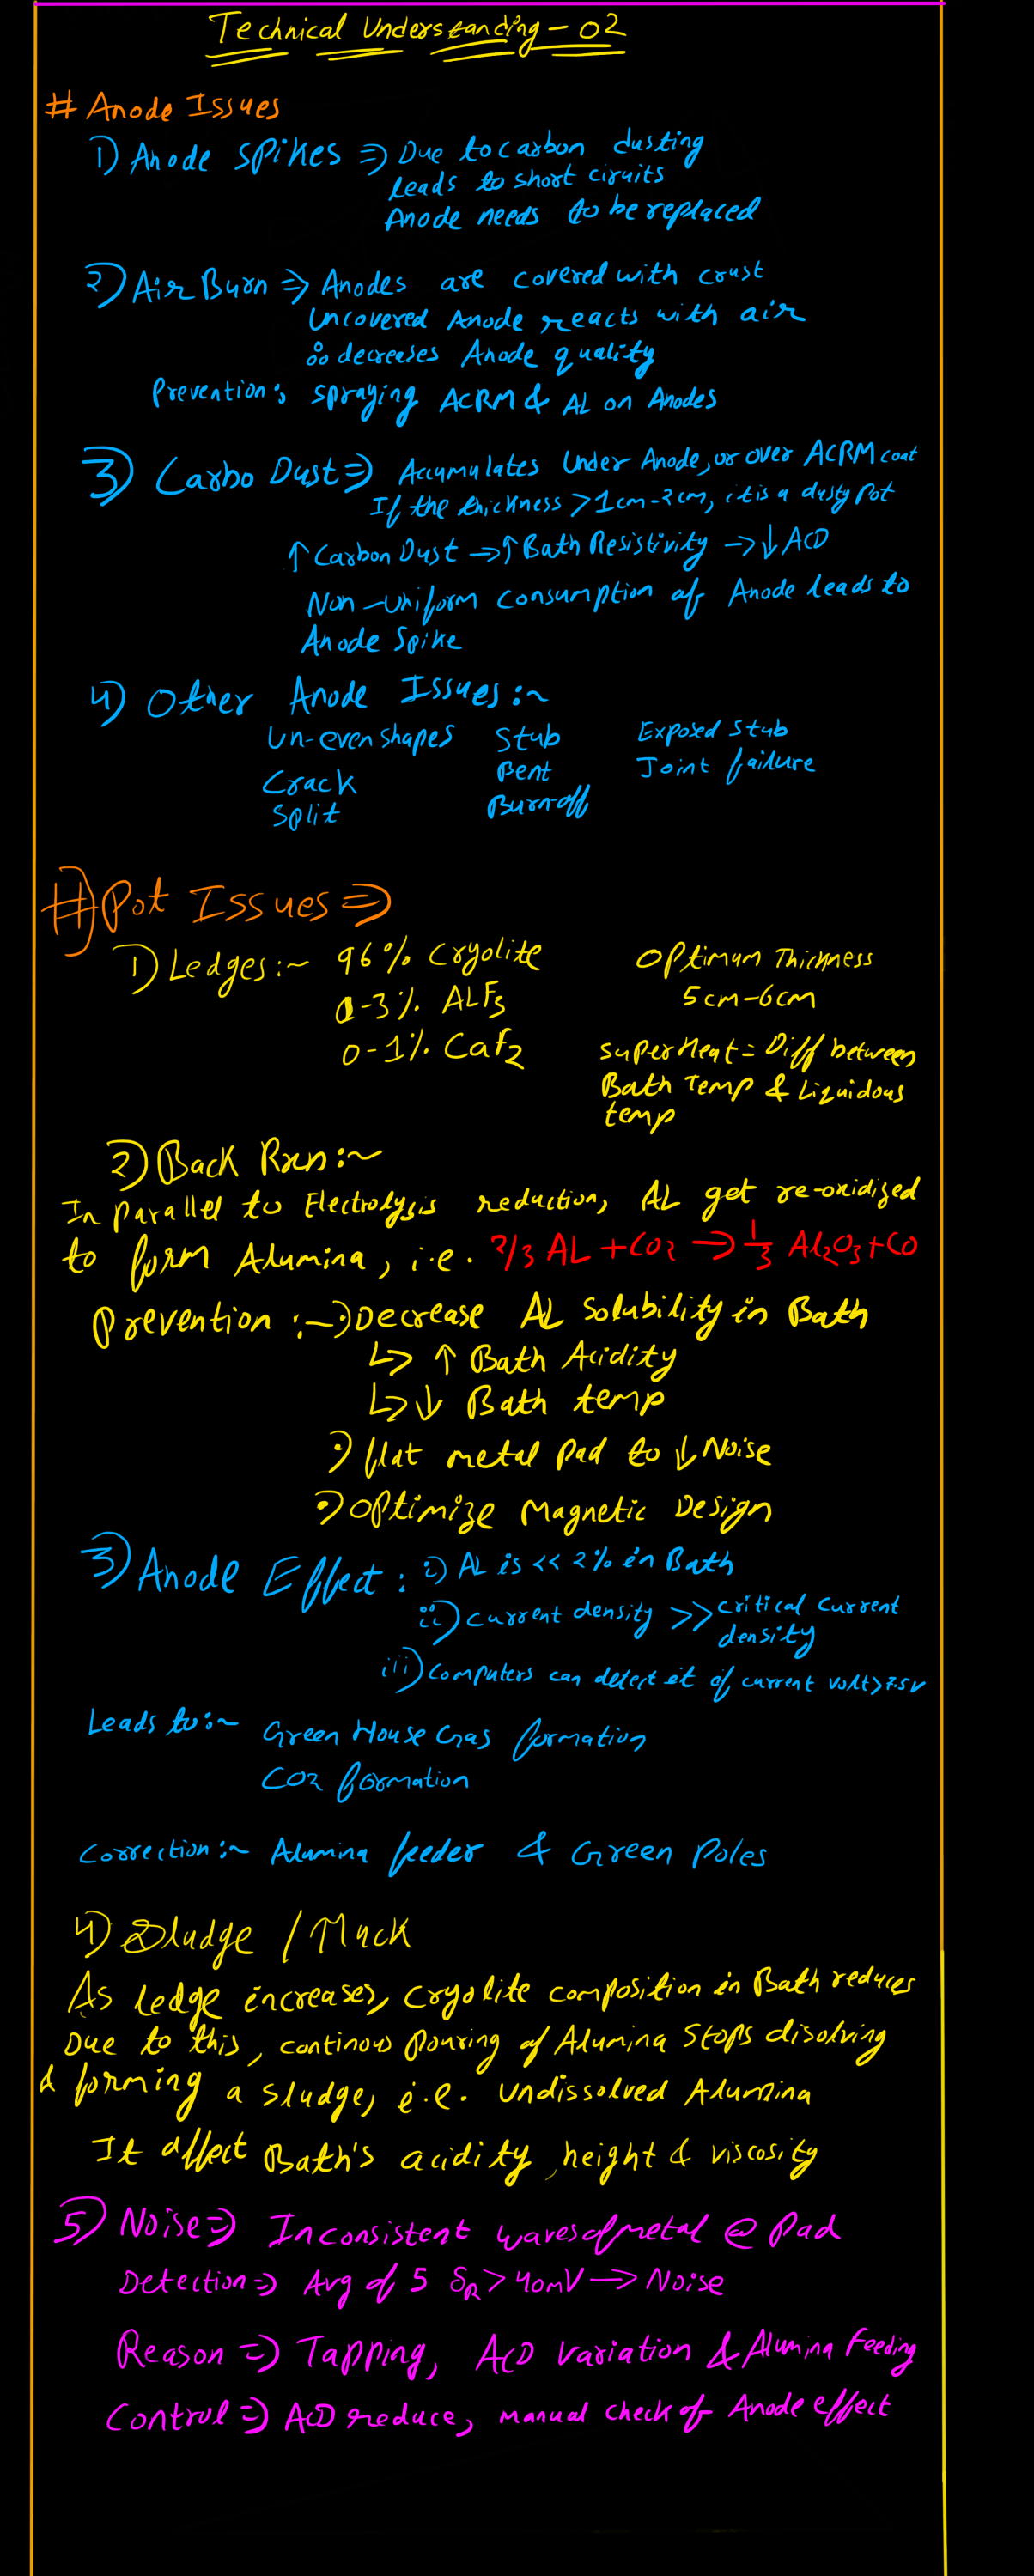 Technical Understanding - 02
# Anode Issues
1) Anode Spikes ⇒ Due to carbon dusting
leads to short ciruits
Anode needs to be replaced
2) Air Burn ⇒ Anodes are covered with crust
Uncovered Anode reacts with air
∴ decreases Anode quality
Prevention: spraying ACRM & AL on Anodes
3) Carbo Dust ⇒ Accumulates Under Anode, or over ACRM coat
If the thickness > 1cm-2cm, it is a dusty pot
↑ Carbon Dust → ↑ Bath Resistivity → ↓ ACD
Non-Uniform consumption of Anode leads to
Anode Spike
4) Other Anode Issues :~
Un-even shapes Stub Exposed Stub
Crack Bent Joint failure
Split Burn-off
# Pot Issues ⇒
1) Ledges :~ 96% Cryolite Optimum Thickness
0-3% ALF3 5cm-6cm
0-1% CaF2 SuperHeat = Diff between
Bath Temp & Liquidous
temp
2) Back Rxn :~
In parallel to Electrolysis reduction, AL get re-oxidized
to form Alumina, i.e. 2/3 AL + CO2 → 1/3 Al2O3 + CO
Prevention :- •) Decrease AL Solubility in Bath
↳ ↑ Bath Acidity
↳ ↓ Bath temp
•) flat metal pad to ↓ Noise
•) Optimize Magnetic Design
3) Anode Effect : i) AL is << 2% in Bath
ii) Current density >> Critical Current
density
iii) Computers can detect it if current volt > 7.5V
Leads to :~ Green House Gas formation
CO2 formation
Correction :~ Alumina feeder & Green Poles
4) Sludge / Muck
As ledge increases, cryolite composition in Bath reduces
Due to this, continous pouring of Alumina Stops disolving
& forming a sludge, i.e. undissolved Alumina
It affect Bath's acidity, height & viscosity
5) Noise ⇒ Inconsistent waves of metal @ Pad
Detection ⇒ Avg of 5 δR > 40mV → Noise
Reason ⇒ Tapping, ACD variation & Alumina Feeding
Control ⇒ ACD reduce, manual check of Anode effect